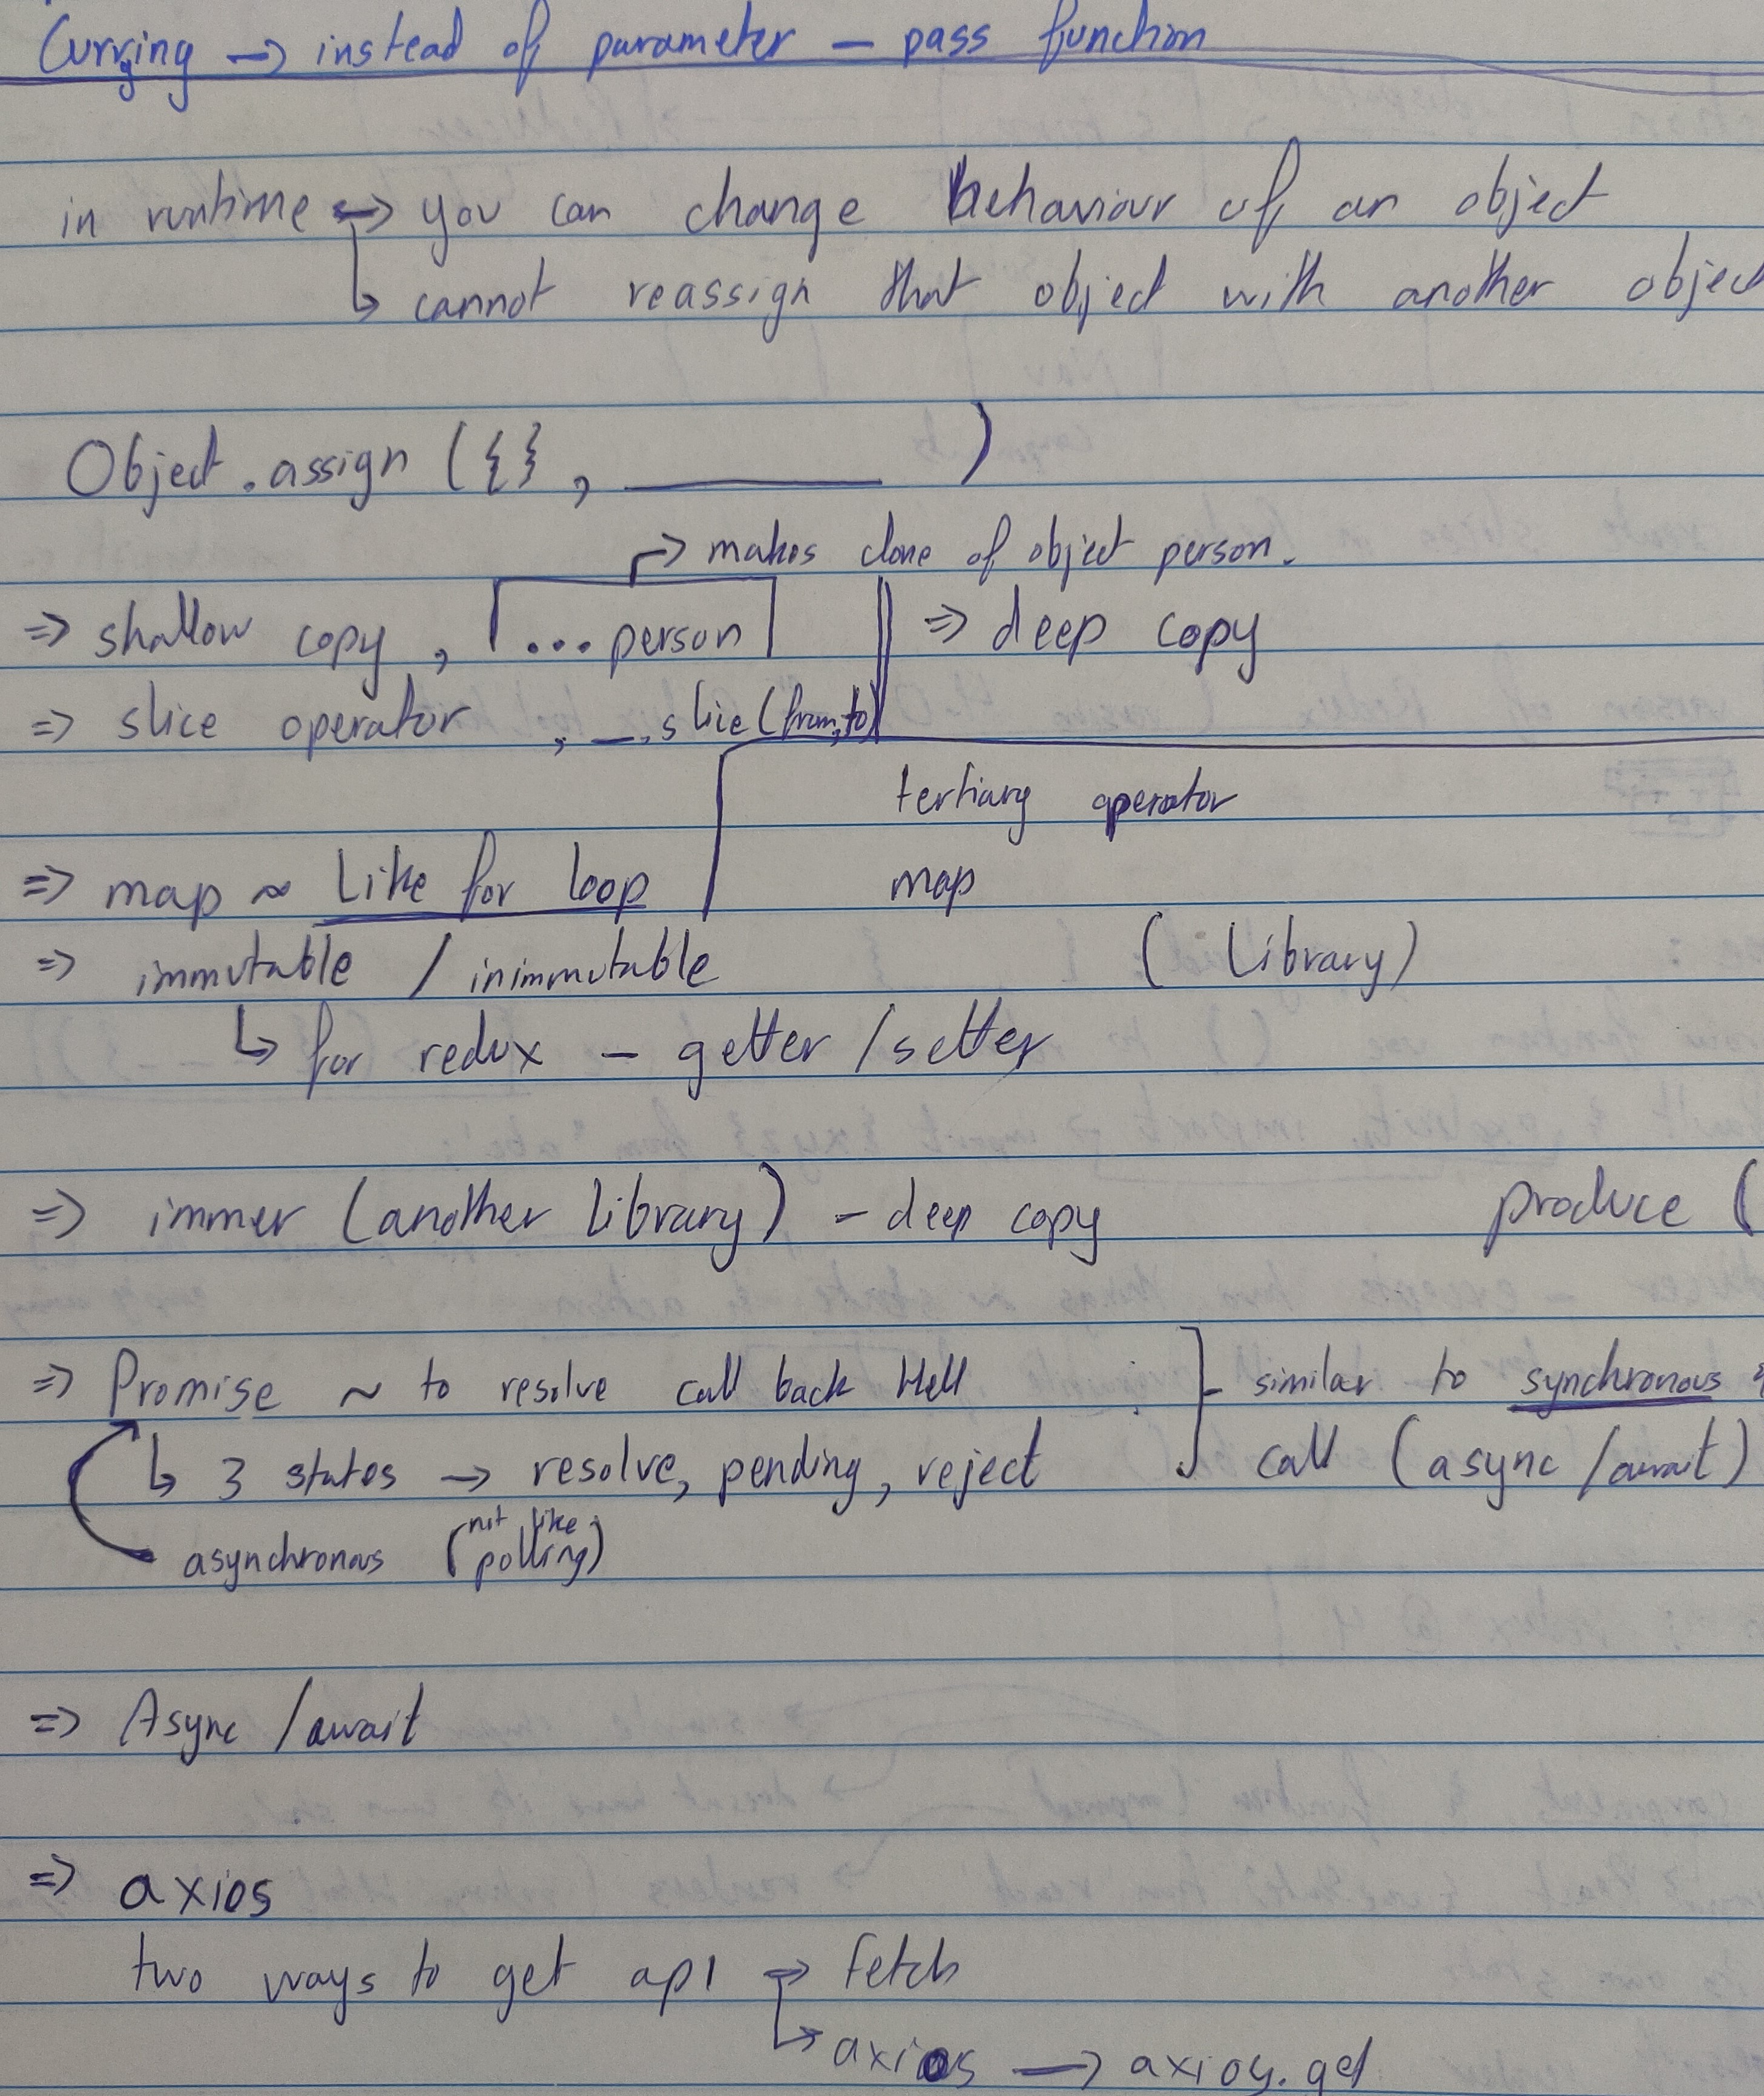 Currying → instead of parameter – pass function
in runtime → you can change behaviour of an object
↳ cannot reassign that object with another object
Object.assign ({}, ________ )
→ makes clone of object person.
⇒ shallow copy, ...person ⇒ deep copy
⇒ slice operator, __.slice(from,to)
tertiary operator
⇒ map ~ Like for loop map
⇒ immutable / inimmutable (Library)
↳ for redux – getter/setter
⇒ immer (another library) – deep copy produce (
⇒ Promise ~ to resolve call back Hell } similar to synchronous
↳ 3 states → resolve, pending, reject call (async/await)
asynchronous (not like polling)
⇒ Async/await
⇒ axios
two ways to get api → fetch
↳ axios → axios.get